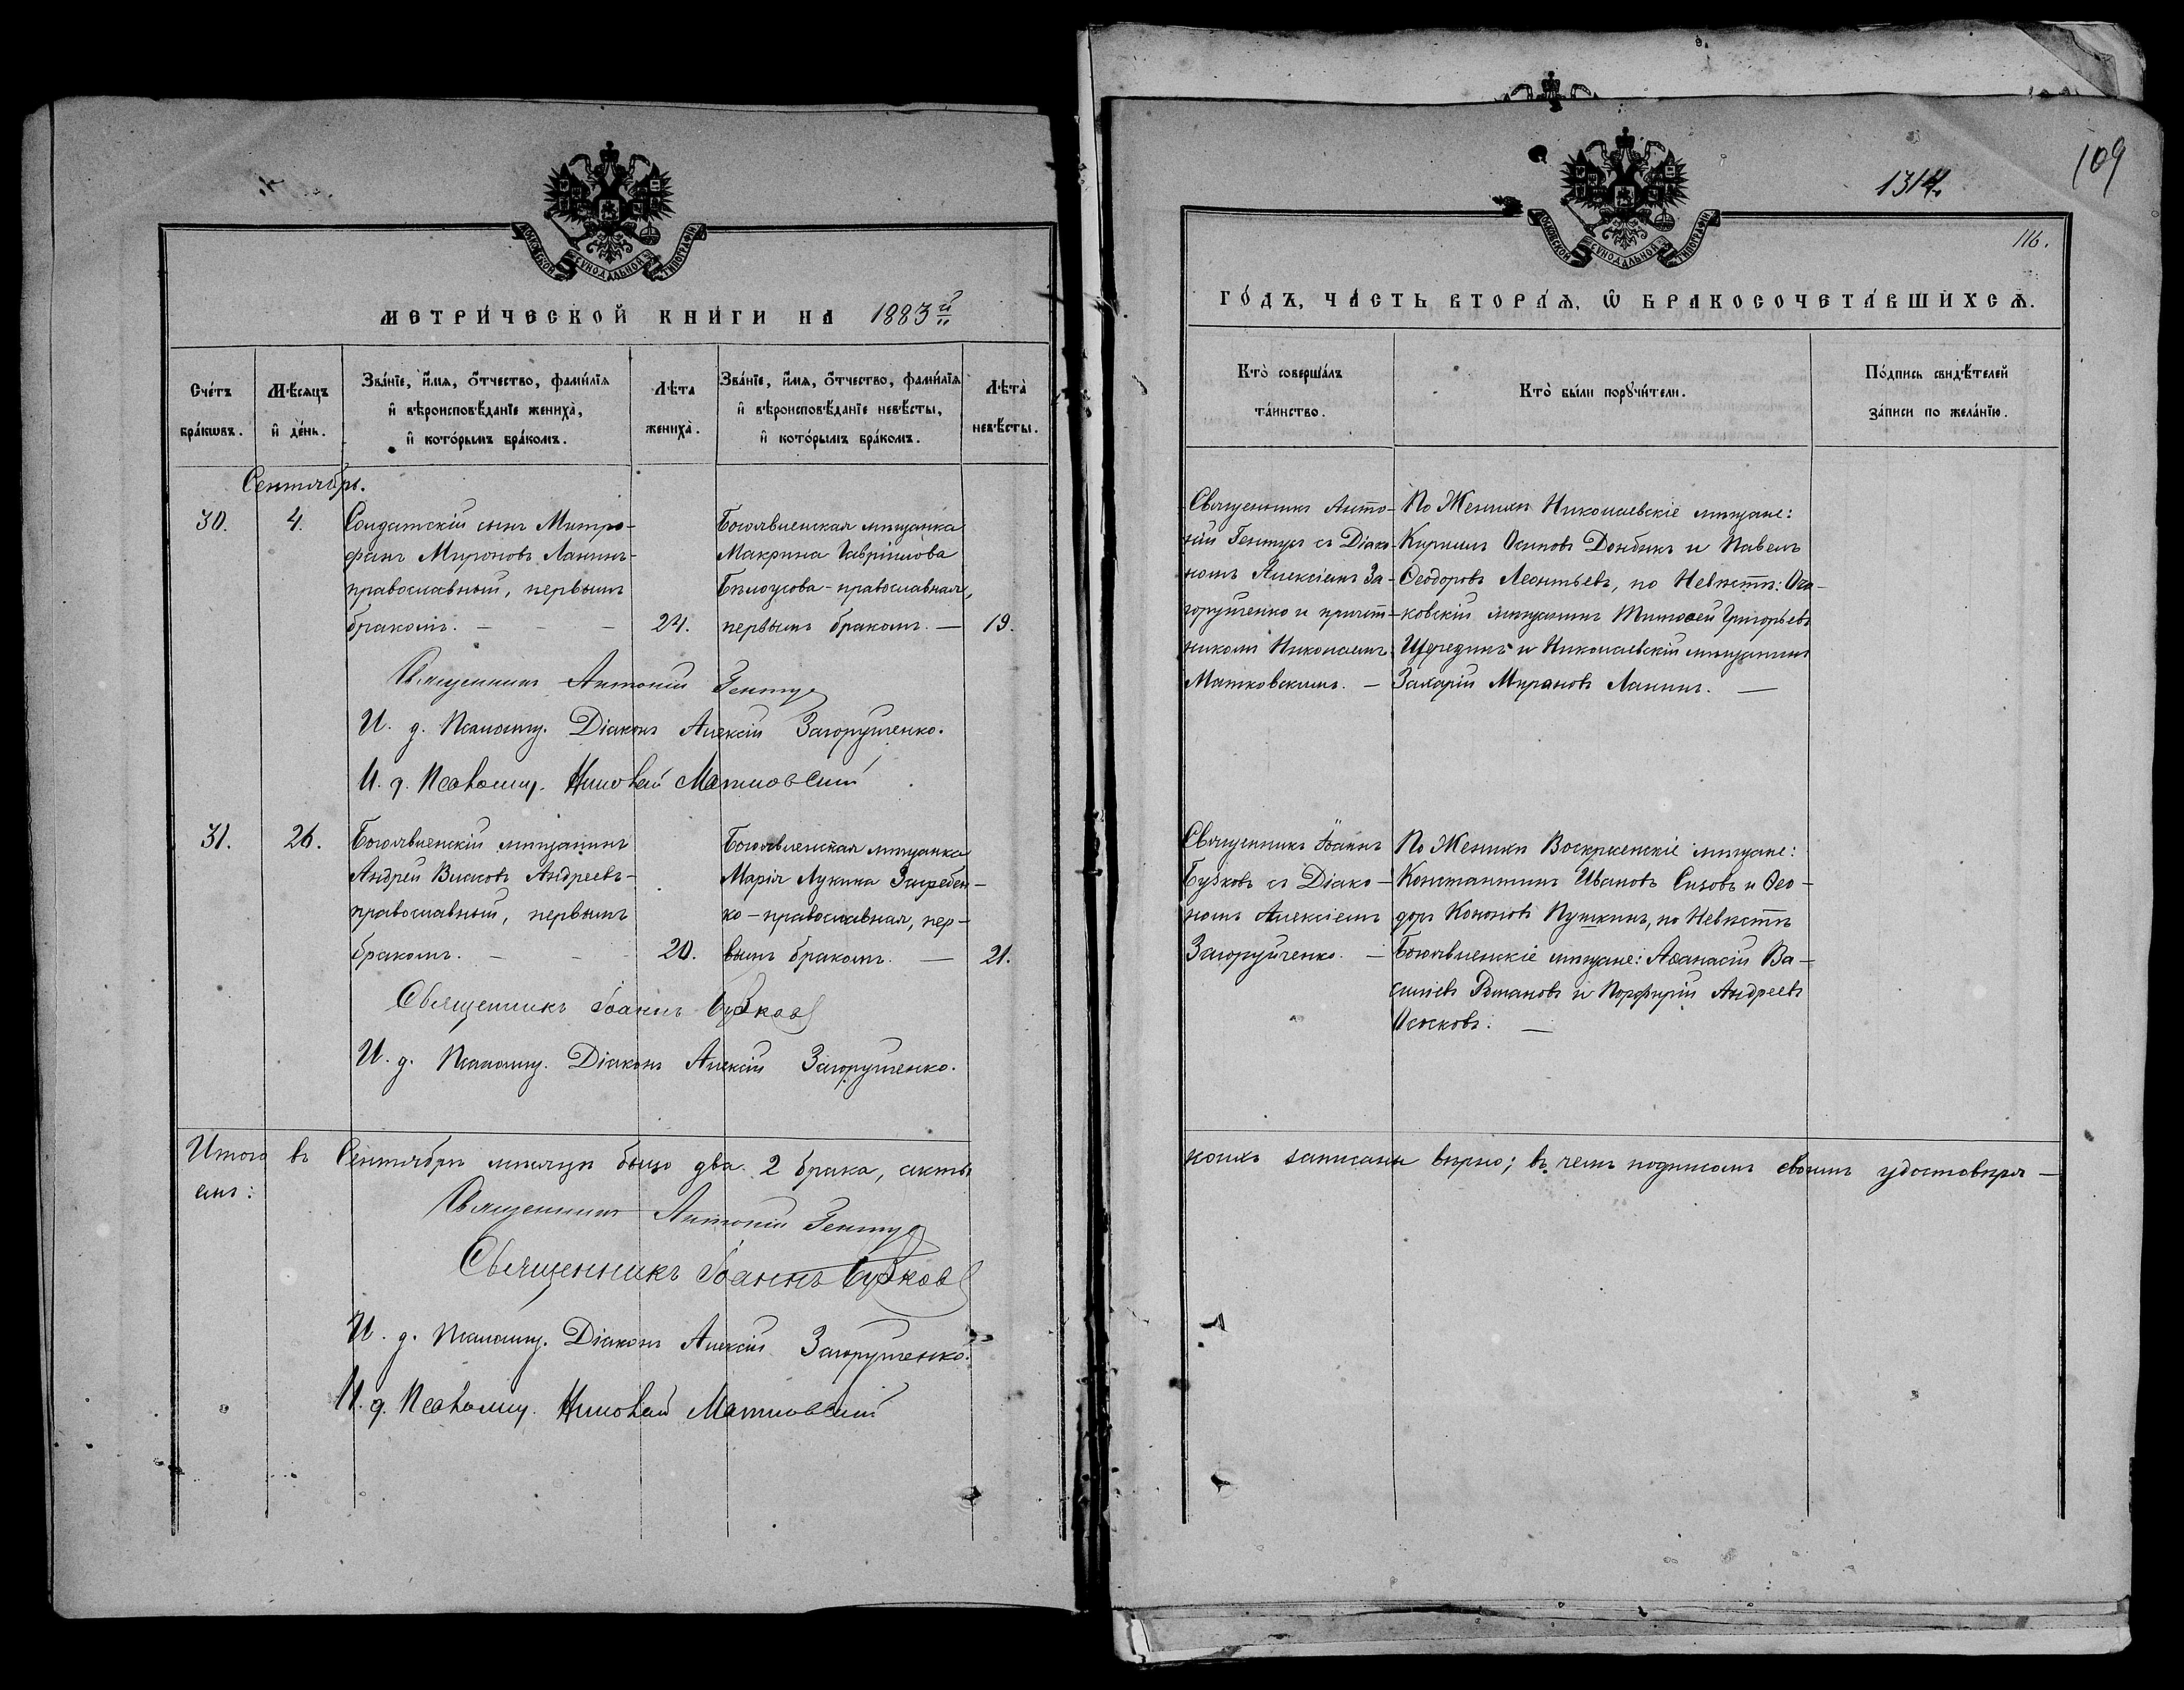 МОСКОВСКОЙ СѴНОДАЛЬНОЙ ТИПОГРАФІИ
МЕТРИ́ЧЕСКОЙ КНИ́ГИ НА 1883й
Сче́тъ бра́кѡвъ.
Мѣ́сяцъ и҆ де́нь.
Зва́нїе, и҆́мѧ, ѻ҆́тчество, фами́лїѧ и҆ вѣроисповѣ́данїе жениха̀, и҆ кото́рымъ бра́комъ.
Лѣ́та жениха̀.
Зва́нїе, и҆́мѧ, ѻ҆́тчество, фами́лїѧ и҆ вѣроисповѣ́данїе невѣ́сты, и҆ кото́рымъ бра́комъ.
Лѣта̀ невѣ́сты.
Сентябрь.
30.
4.
Солдатскій сынъ Митро-
фанъ Мироновъ Лапинъ-
православный, первымъ
бракомъ. - - -
24.
Богоявленская мѣщанка
Макрина Гавріилова
Бѣлоусова - православная,
первымъ бракомъ. —
19.
Священникъ Антоній Гентуд
И. д. Псаломщ. Діаконъ Алексій Загорулченко.
И. д. Псаломщ. Николай Матковский
31.
26.
Богоявленскій мѣщанинъ
Андрей Власовъ Андреевъ-
православный, первымъ
бракомъ. - - -
20.
Богоявленская мѣщанка
Марія Лукина Загребен-
ко - православная, пер-
вымъ бракомъ. —
21.
Священникъ Іоаннъ Бужковъ
И. д. Псаломщ. Діаконъ Алексій Загорулченко.
Итого въ Сентябрѣ мѣсяцѣ было два 2 брака, акты
емъ:
Священникъ Антоній Гентуд
Священникъ Іоаннъ Бужковъ
И. д. Псаломщ. Діаконъ Алексій Загорулченко.
И. д. Псаломщ. Николай Матковский
109
1314.
116.
МОСКОВСКОЙ СѴНОДАЛЬНОЙ ТИПОГРАФІИ
ГО́ДЪ, ЧА́СТЬ ВТОРА́Ѧ, Ѡ҆ БРАКОСОЧЕТА́ВШИХСѦ.
Кто̀ соверша́лъ та́инство.
Кто̀ бы́ли порꙋчи́тели.
По́дпись свидѣ́телей за́писи по жела́нїю.
Священникъ Анто-
ній Гентуд съ Діако-
номъ Алексіемъ За-
горулченко и причет-
никомъ Николаемъ
Матковскимъ. —
По Женихѣ Николаевскіе мѣщане:
Кириллъ Осиповъ Донбикъ и Павелъ
Ѳеодоровъ Леонтьевъ, по Невѣстѣ: Оча-
ковскій мѣщанинъ Тимоѳей Григорьевъ
Щерединъ и Николаевскій мѣщанинъ
Захарій Мироновъ Лапинъ. —
Священникъ Іоаннъ
Бужковъ съ Діако-
номъ Алексіемъ
Загорулченко. —
По Женихѣ Воскресенскіе мѣщане:
Константинъ Ивановъ Сизовъ и Ѳео-
доръ Кононовъ Пушкинъ, по Невѣстѣ
Богоявленскіе мѣщане: Аѳанасій Ва-
сильевъ Романовъ и Порфирій Андреевъ
Ососковъ. —
коихъ записаны вѣрно; въ чемъ подписомъ своимъ удостовѣря-